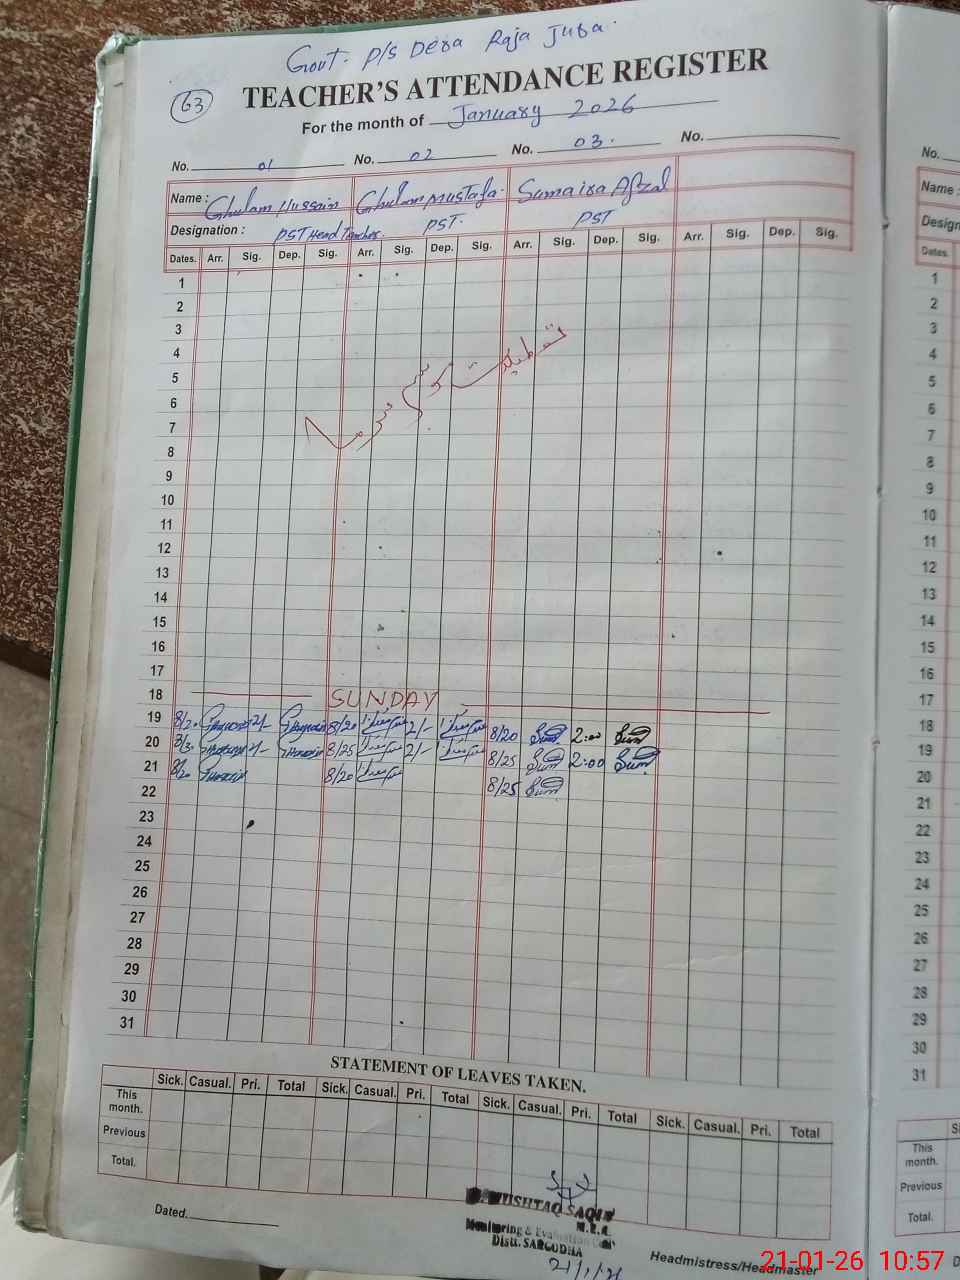 Govt. P/S Dera Raja Jura
63
TEACHER'S ATTENDANCE REGISTER
For the month of January 2026
No. 01 No. 02 No. 03. No.
Name : Ghulam Hussain Ghulam Mustafa. Sumaira Afzal
Designation : PST Head Teacher. PST. PST
Dates. Arr. Sig. Dep. Sig. Arr. Sig. Dep. Sig. Arr. Sig. Dep. Sig. Arr. Sig. Dep. Sig.
1
2
3
4
تعطیلات موسم سرما
5
6
7
8
9
10
11
12
13
14
15
16
17
18 SUNDAY
19 8/20 2/- 8/20 2/- 8/20 2:00
20 8/30 2/- 8/25 2/- 8/25 2:00
21 8/20 8/20 8/25
22
23
24
25
26
27
28
29
30
31
STATEMENT OF LEAVES TAKEN.
Sick. Casual. Pri. Total Sick. Casual. Pri. Total Sick. Casual. Pri. Total Sick. Casual. Pri. Total
This month.
Previous
Total.
Dated.
MUSHTAQ SAQIB
M.E.A.
Monitoring & Evaluation
Distt. SARGODHA
21/1/26
Headmistress/Headmaster
No.
Name :
Dates.
1
2
3
4
5
6
7
8
9
10
11
12
13
14
15
16
17
18
19
20
21
22
23
24
25
26
27
28
29
30
31
This month.
Previous
Total.
21-01-26 10:57